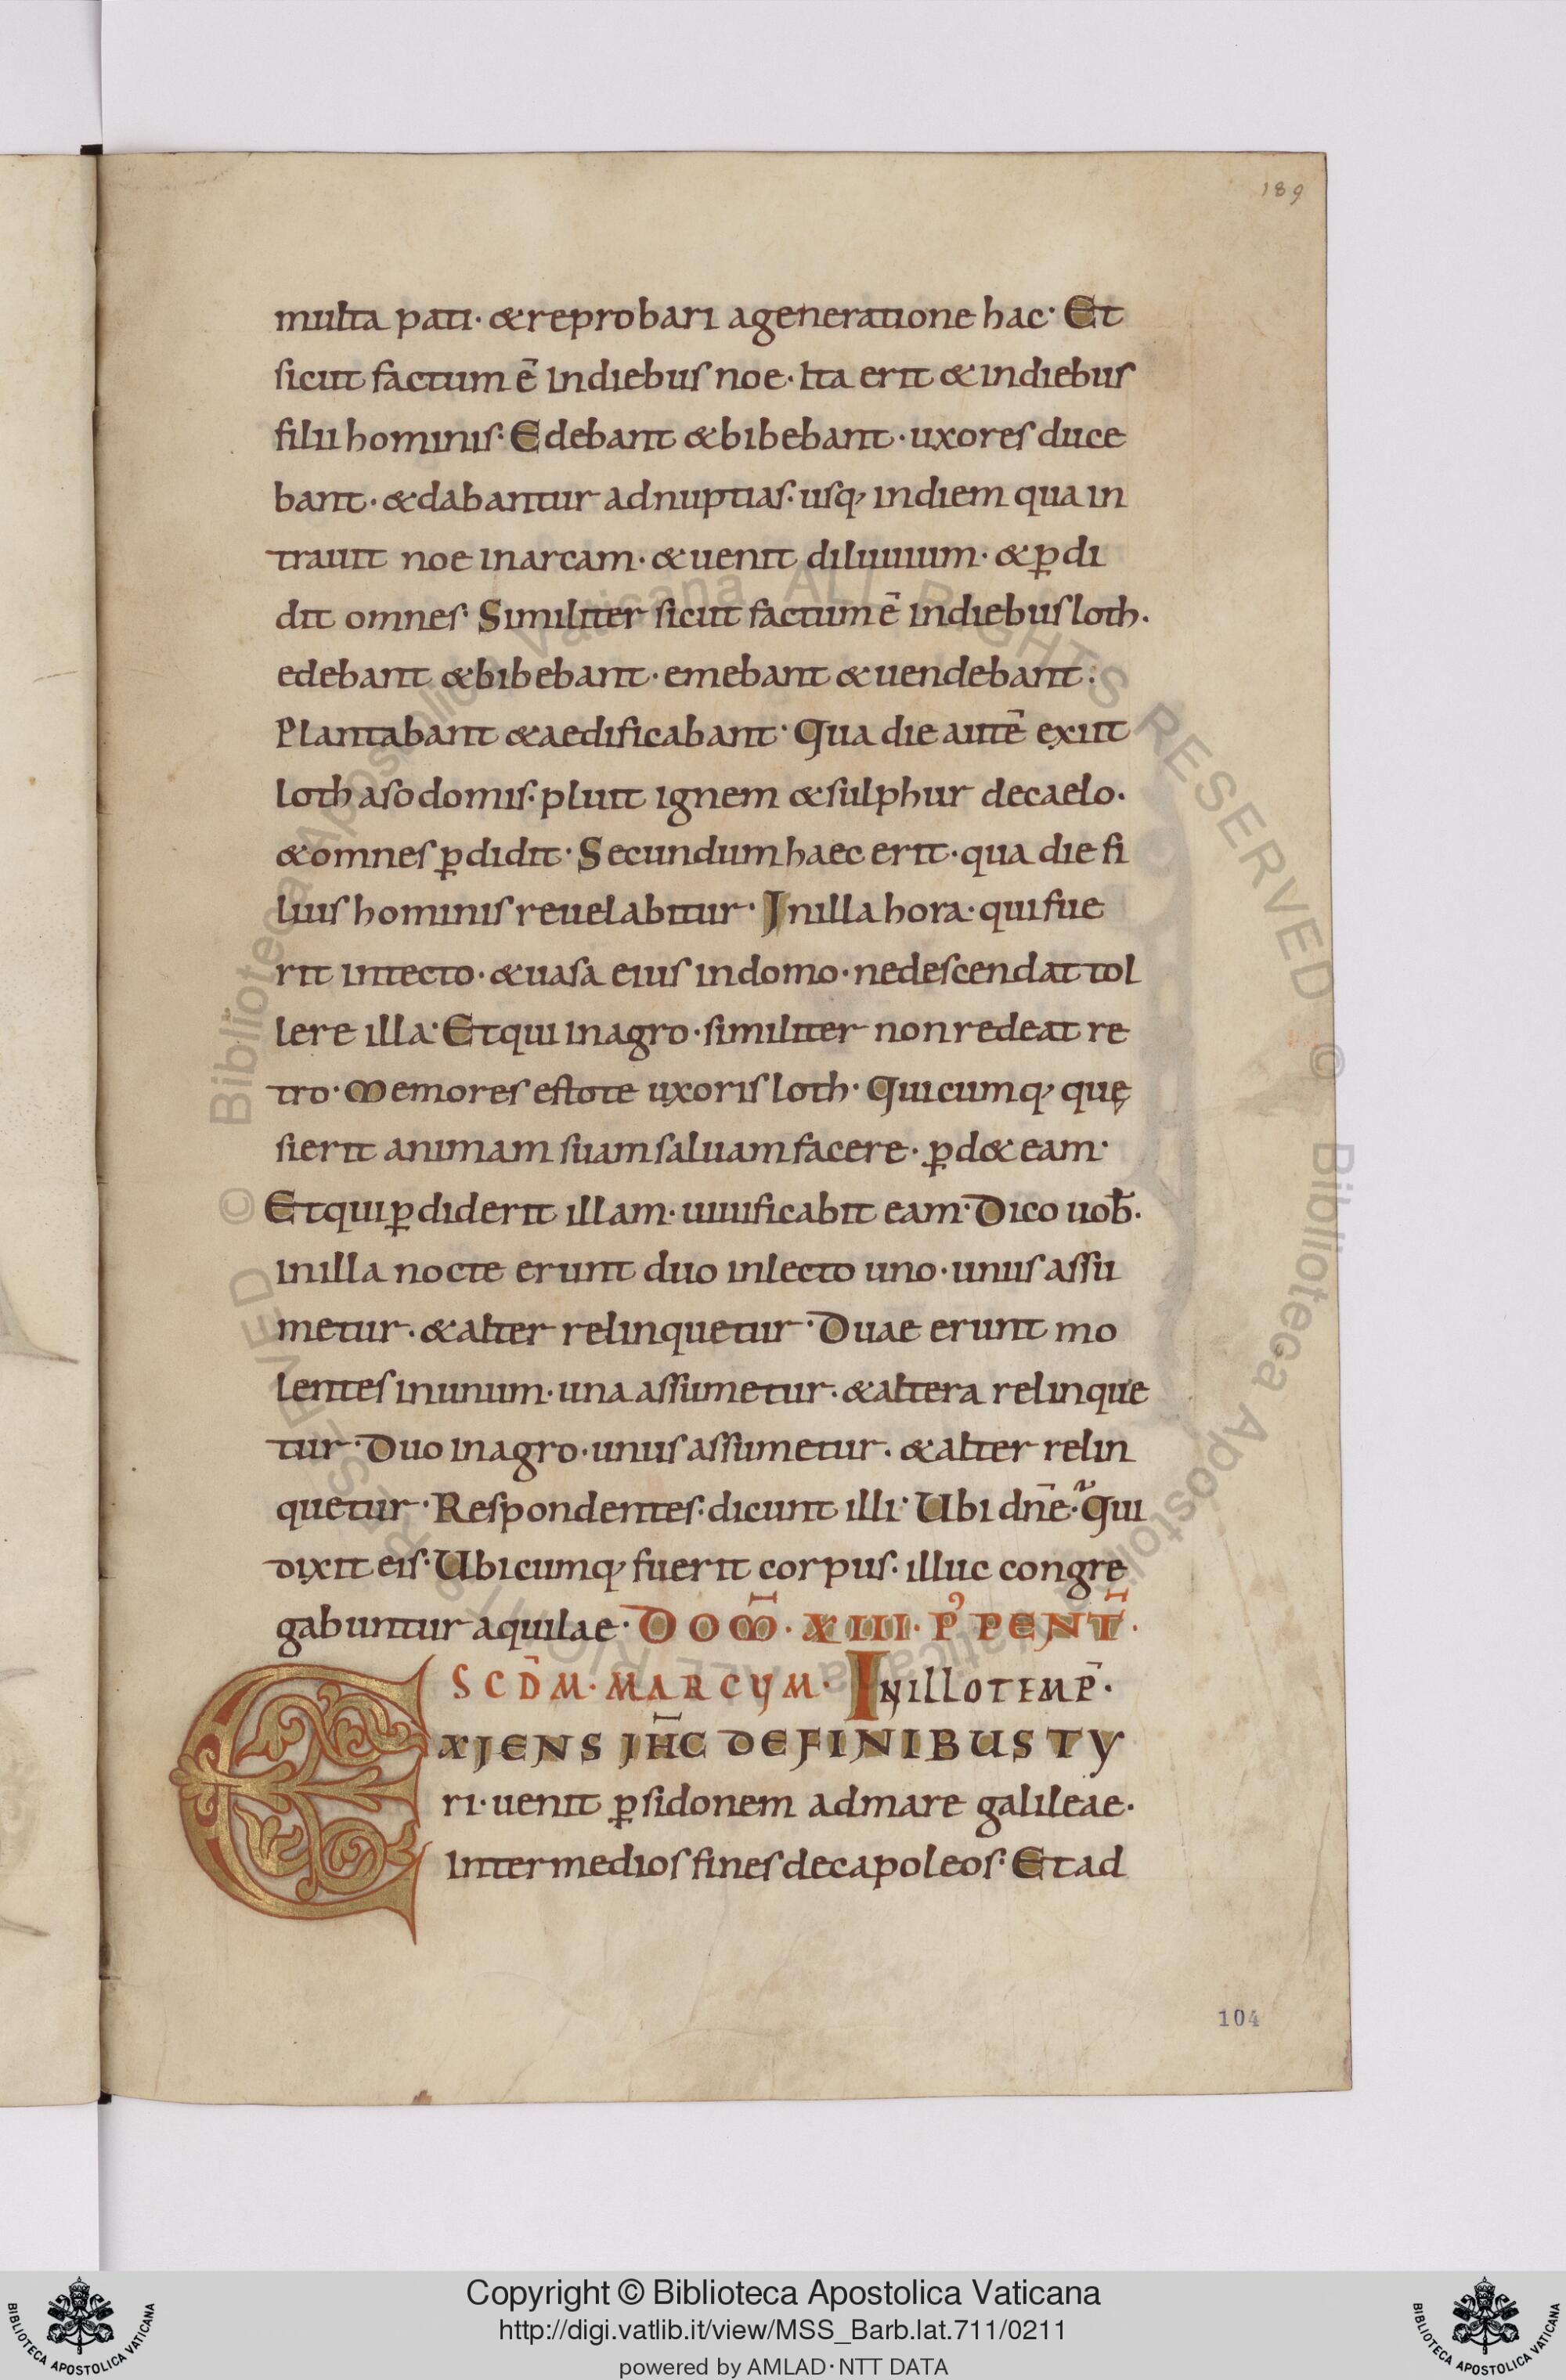 189
multa pati· & reprobari a generatione hac· Et
sicut factum ē in diebus noe· Ita erit & in diebus
filii hominis· Edebant & bibebant· uxores duce
bant· & dabantur ad nuptias· usq, in diem qua in
trauit noe in arcam· & uenit diluuium· & ꝑdi
dit omnes· Similiter sicut factum ē in diebus loth·
edebant & bibebant· emebant & uendebant:
Plantabant & aedificabant· Qua die autē exiit
loth a sodomis· pluit ignem & sulphur de caelo·
& omnes ꝑdidit· Secundum haec erit· qua die fi
lius hominis reuelabitur· In illa hora· qui fue
rit in tecto· & uasa eius in domo· ne descendat tol
lere illa· Et qui in agro· similiter non redeat re
tro· Memores estote uxoris loth· Quicumq, quę
sierit animam suam saluam facere· ꝑd& eam·
Et qui ꝑdiderit illam· uiuificabit eam· Dico uob̄·
in illa nocte erunt duo in lecto uno· unus assu
metur· & alter relinquetur· Duae erunt mo
lentes in unum· una assumetur· & altera relinque
tur· Duo in agro· unus assumetur· & alter relin
quetur· Respondentes· dicunt illi· Ubi dn̄e· Qui
dixit eis· Ubicumq, fuerit corpus· illuc congre
gabuntur aquilae· DOM̄· XIII· P' PENT̄·
SCD̄M· MARCUM· IN ILLO TEMP̄·
EXIENS IH̄C DE FINIBUS TY
ri· uenit ꝑ sidonem ad mare galileae·
Inter medios fines decapoleos· Et ad
104
© Biblioteca Apostolica Vaticana ALL RIGHTS RESERVED
© Biblioteca Apostolica Vaticana ALL RIGHTS RESERVED
Copyright © Biblioteca Apostolica Vaticana
http://digi.vatlib.it/view/MSS_Barb.lat.711/0211
powered by AMLAD·NTT DATA
BIBLIOTECA APOSTOLICA VATICANA
BIBLIOTECA APOSTOLICA VATICANA